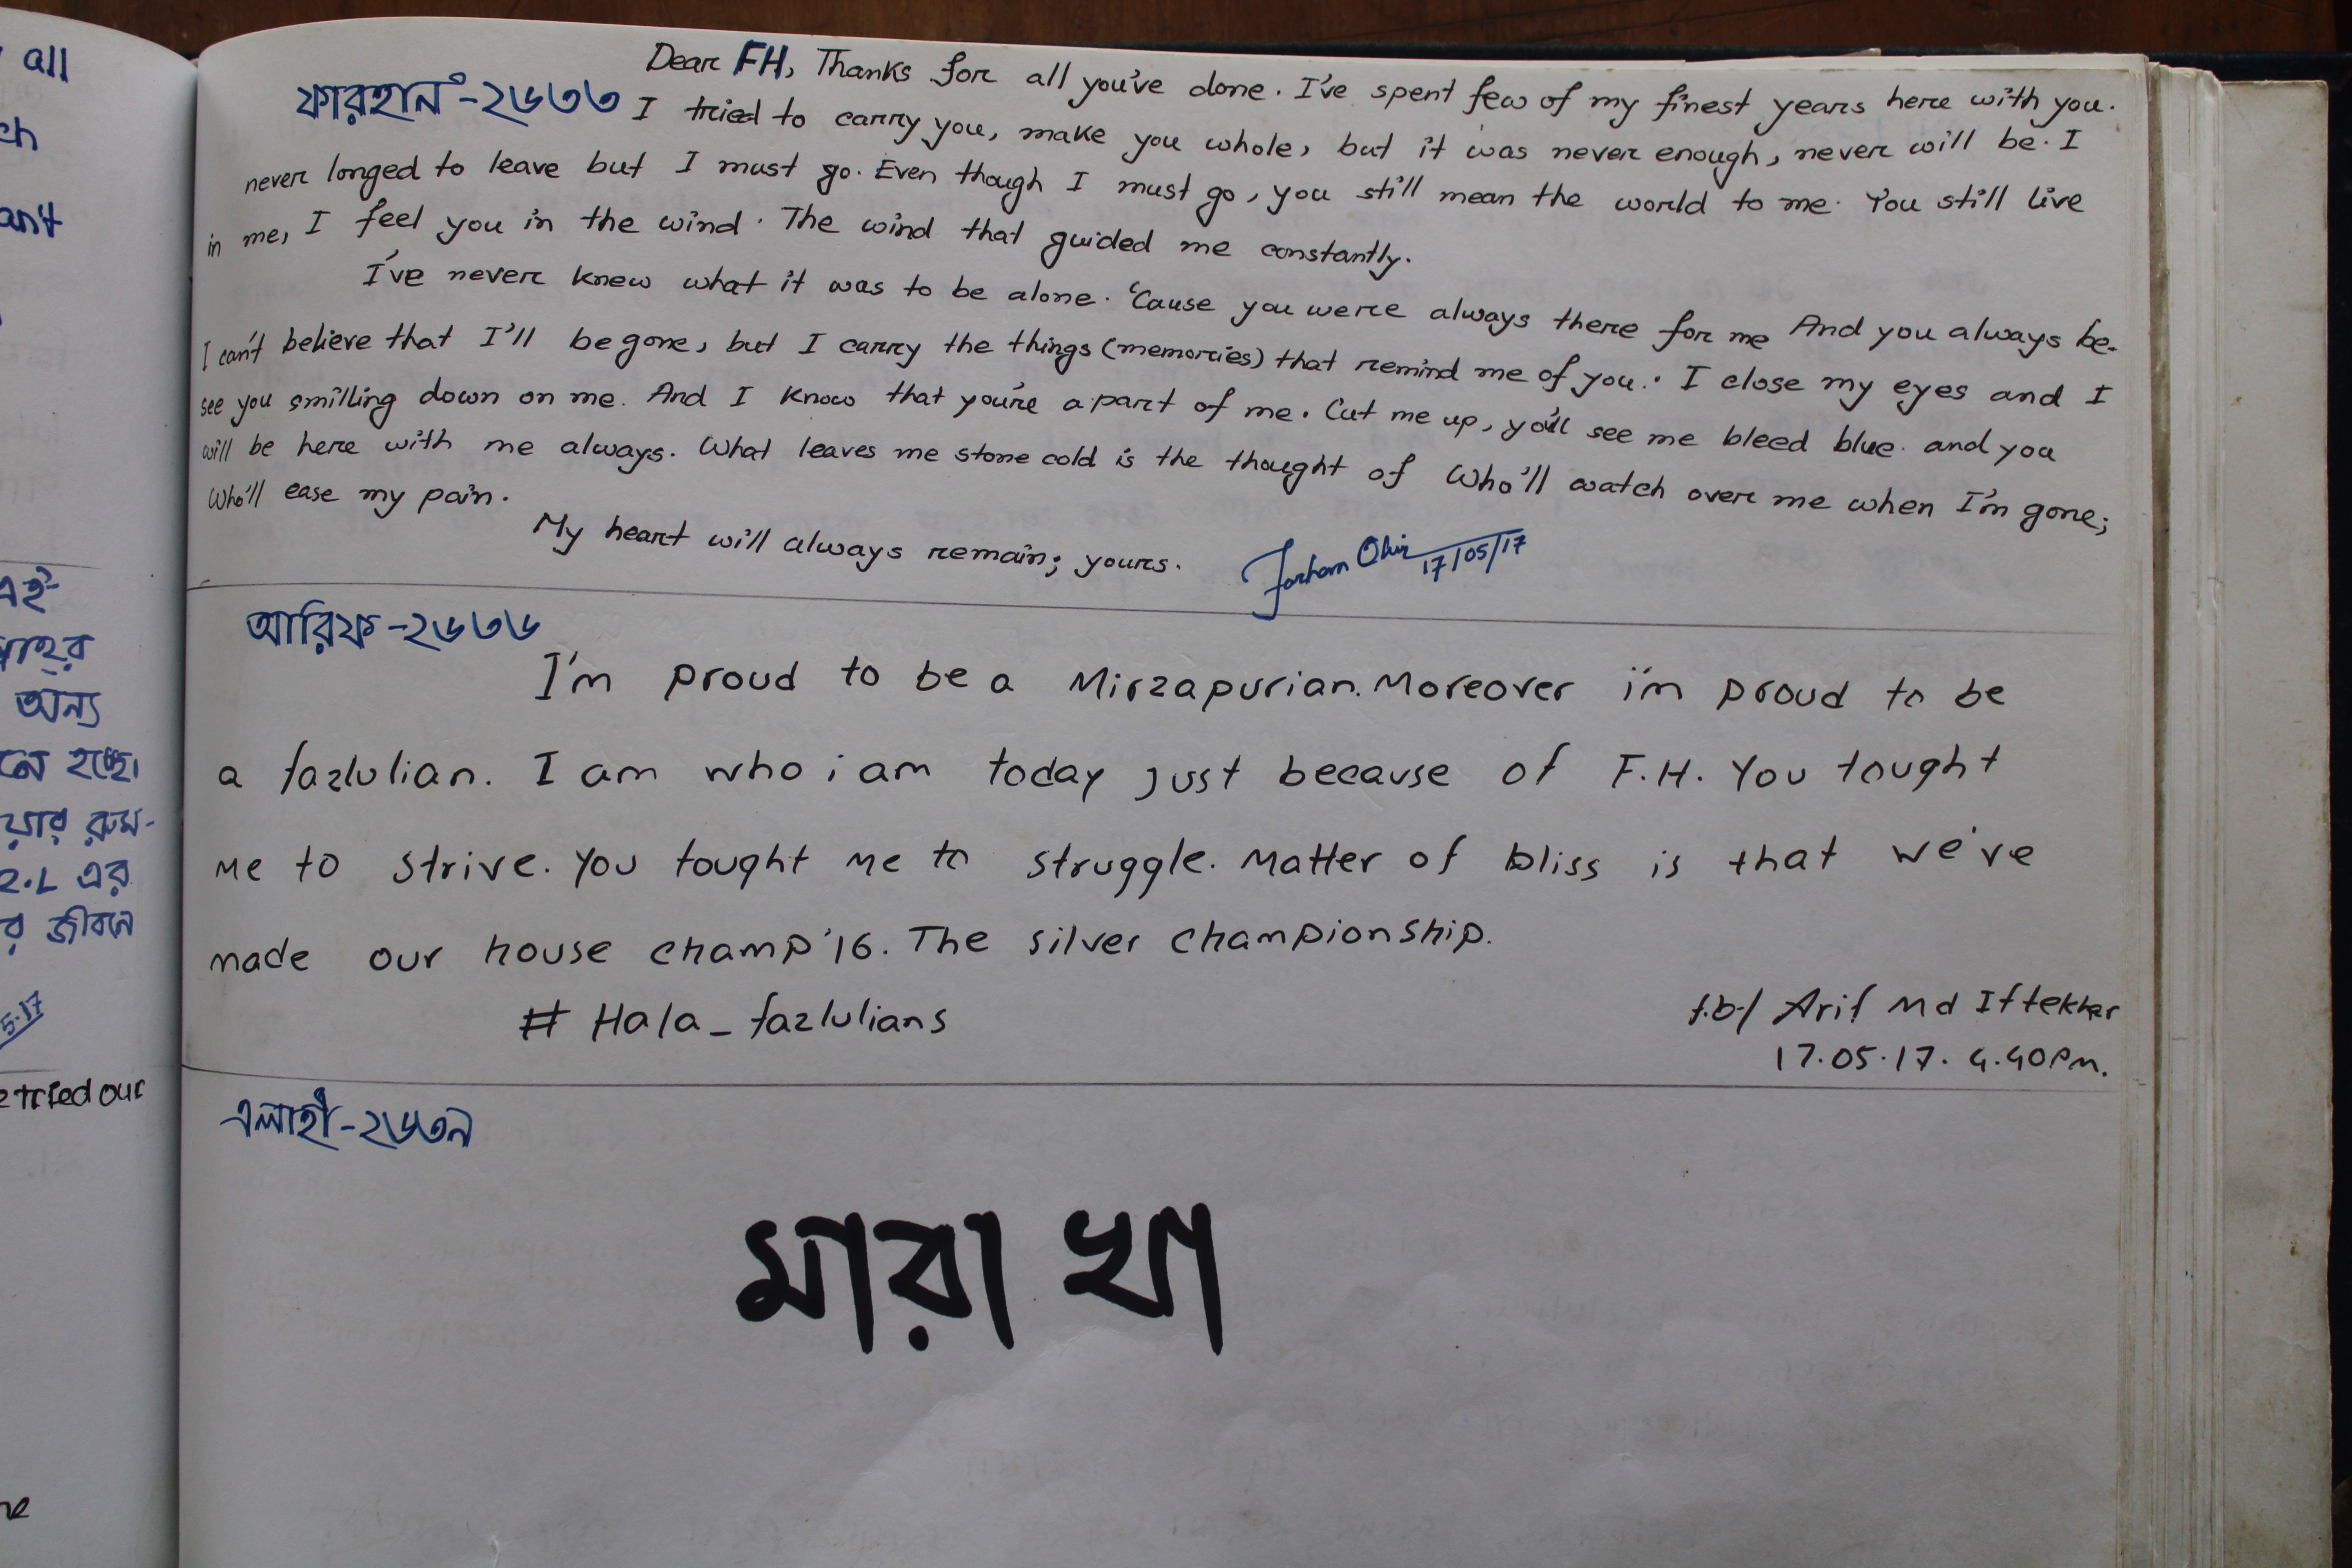 all
ch
an't
এই
অন্য
হচ্ছে।
রুম-
২.L এর
র জীবনে
5.17
tried our
ne
ফারহান-২৬৩৩
Dear FH, Thanks for all you've done. I've spent few of my finest years here with you.
I tried to carry you, make you whole, but it was never enough, never will be. I
never longed to leave but I must go. Even though I must go, you still mean the world to me. You still live
in me, I feel you in the wind. The wind that guided me constantly.
I've never knew what it was to be alone. 'Cause you were always there for me And you always be.
I can't believe that I'll be gone, but I carry the things (memories) that remind me of you.. I close my eyes and I
see you smilling down on me. And I know that you're a part of me. Cut me up, you'll see me bleed blue. and you
will be here with me always. What leaves me stone cold is the thought of Who'll watch over me when I'm gone;
Who'll ease my pain.
My heart will always remain; yours.
Farhan 17/05/17
আরিফ-২৬৩৬
I'm proud to be a Mirzapurian. Moreover i'm proud to be
a fazlulian. I am who i am today just because of F.H. You tought
me to strive. You tought me to struggle. Matter of bliss is that we've
made our house champ'16. The silver championship.
# Hala_fazlulians
f.b-/ Arif Md Iftekhar
17.05.17. 4.40pm.
এলাহী-২৬৩৯
মারা খা